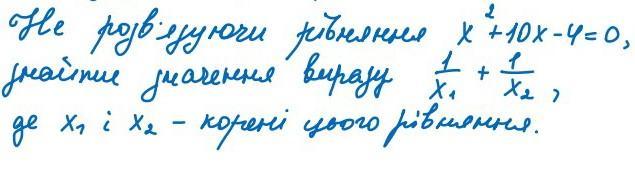 Не розв'язуючи рівняння x² + 10x - 4 = 0,
знайти значення виразу 1/x₁ + 1/x₂,
де x₁ і x₂ - корені цього рівняння.